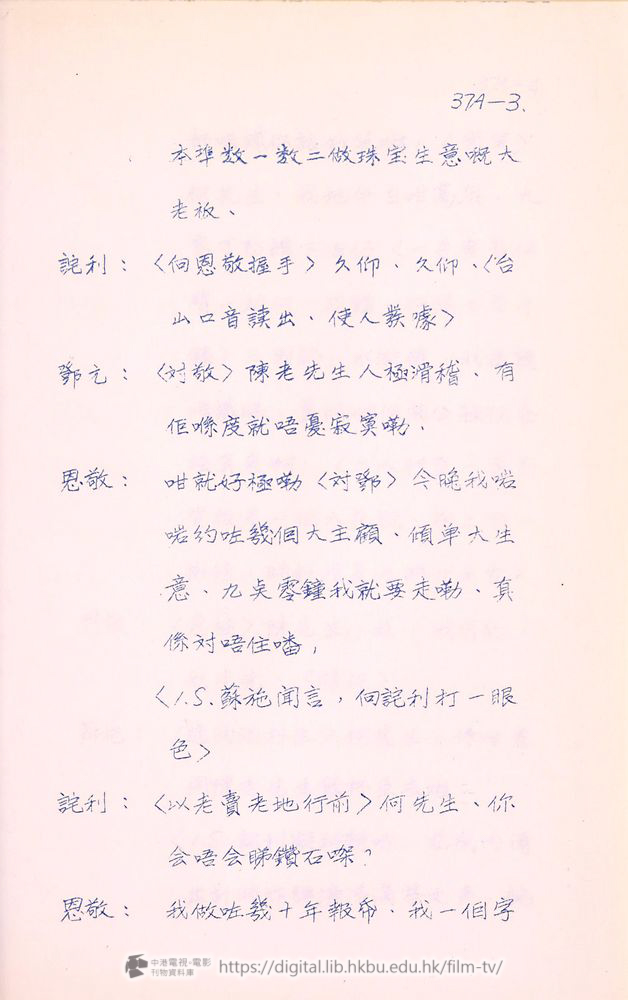 37A-3.
本埠数一数二做珠宝生意嘅大
老板、
詫利：〈向恩敬握手〉久仰、久仰、〈台
山口音讀出、使人發噱〉
鄧元：〈对敬〉陳老先生人極滑稽、有
佢喺度就唔憂寂寞嘞.
恩敬：咁就好極嘞〈対鄧〉今晚我啱
啱约咗幾個大主顧、傾單大生
意、九点零鐘我就要走嘞、真
係对唔住噃，
〈I.S.蘇施闻言，向詫利打一眼
色〉
詫利：〈以老賣老地行前〉何先生、你
会唔会睇鑽石㗎？
恩敬：我做咗幾十年報帋、我一個字
中港電視•電影
刊物資料庫
https://digital.lib.hkbu.edu.hk/film-tv/